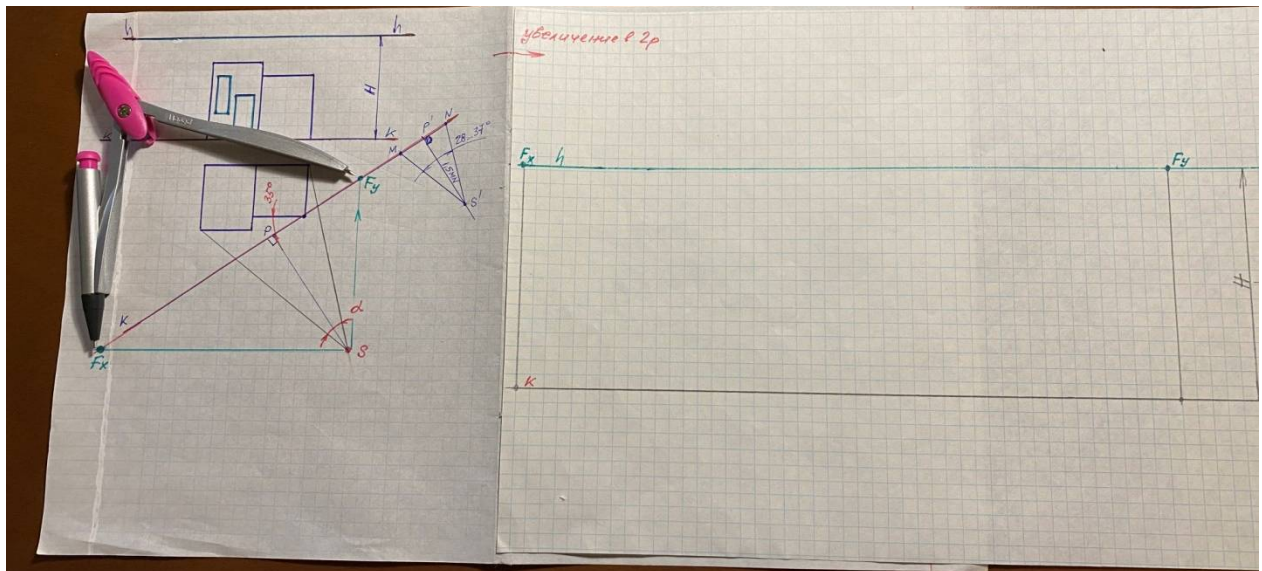 h h
H
K K
P' N
M
28-37°
1,5MN
S'
Fy
35°
P
K
α
S
Fx
увеличение в 2р
Fx h Fy
H
K